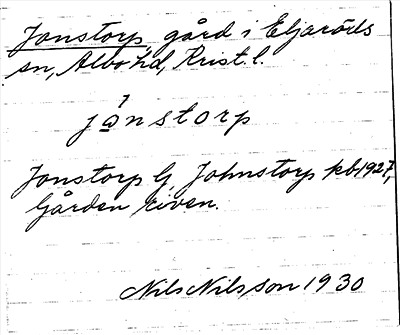 Jonstorp, gård i Eljaröds
sn, Albo hd, Krist. l.
jǫ́nstorp
Jonstorp G, Johnstorp kb 1927,
Gården riven.
Nils Nilsson 1930